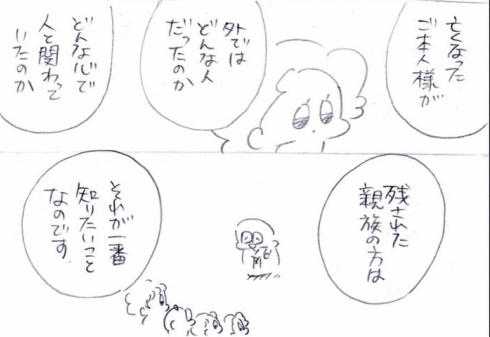 亡くなった
ご本人様が
外では
どんな人
だったのか
どんな心で
人と関わって
いたのか
残された
親族の方は
それが一番
知りたいこと
なのです